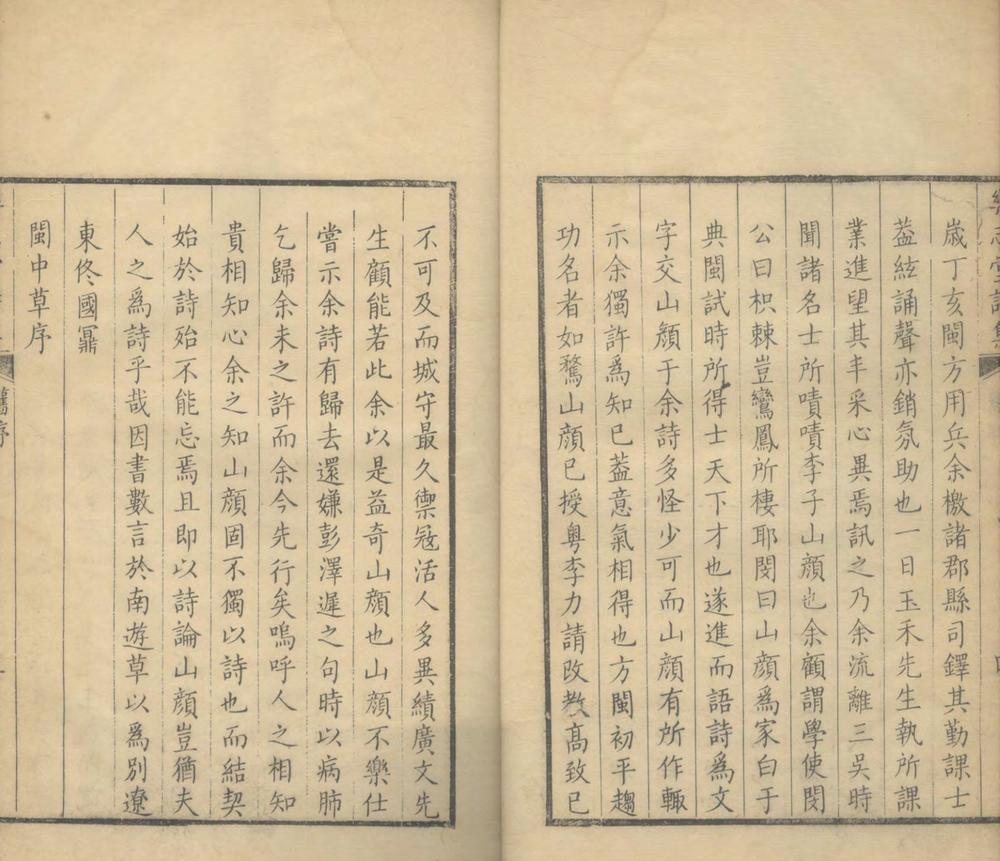 歲丁亥閩方用兵余檄諸郡縣司鐸其勤課士
葢絃誦聲亦銷氛助也一日玉禾先生執所課
業進望其丰采心異焉訊之乃余流離三吳時
聞諸名士所嘖嘖李子山顔也余顧謂學使閔
公曰枳棘豈鸞鳳所棲耶閔曰山顔爲家白于
典閩試時所得士天下才也遂進而語詩爲文
字交山顔于余詩多怪少可而山顔有所作輙
示余獨許爲知已葢意氣相得也方閩初平趨
功名者如騖山顔已授粤李力請改教高致已
不可及而城守最久禦冦活人多異績廣文先
生顧能若此余以是益奇山顔也山顔不樂仕
嘗示余詩有歸去還嫌彭澤遲之句時以病肺
乞歸余未之許而余今先行矣嗚呼人之相知
貴相知心余之知山顔固不獨以詩也而結契
始於詩殆不能忘焉且即以詩論山顔豈猶夫
人之爲詩乎哉因書數言於南遊草以爲別遼
東佟國鼐
閩中草序
舊序